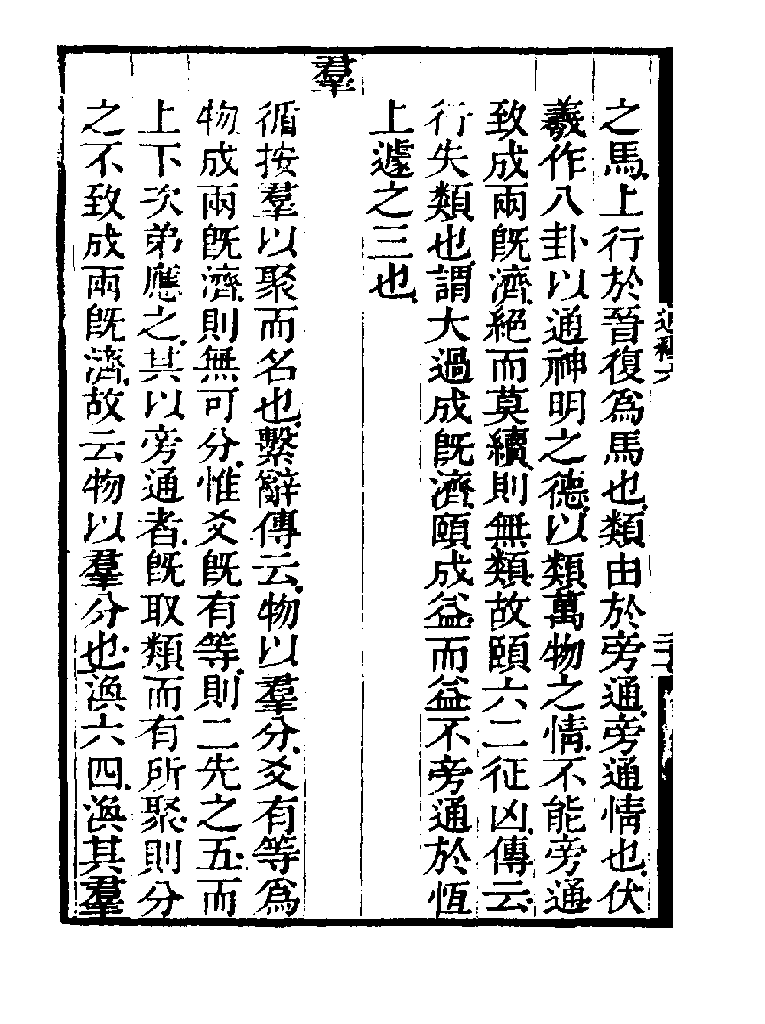 之馬上行於晉復爲馬也類由於旁通旁通情也伏
羲作八卦以通神明之德以類萬物之情不能旁通
致成兩旣濟絕而莫續則無類故頤六二征凶傳云
行失類也謂大過成旣濟頤成益而益不旁通於恆
上遽之三也
羣
循按羣以聚而名也繫辭傳云物以羣分爻有等爲
物成兩旣濟則無可分惟爻旣有等則二先之五而
上下次弟應之其以旁通者旣取類而有所聚則分
之不致成兩旣濟故云物以羣分也渙六四渙其羣